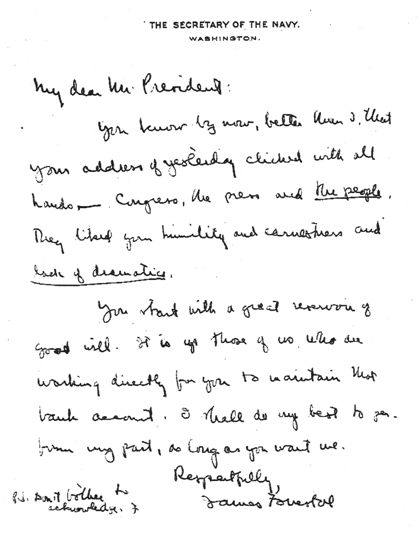 THE SECRETARY OF THE NAVY.
WASHINGTON.
My dear Mr. President:
You know by now, better than I, that
your address of yesterday clicked with all
hands — Congress, the press and the people.
They liked your humility and earnestness and
lack of dramatics.
You start with a great reservoir of
good will. It is up those of us who are
working directly for you to maintain that
bank account. I shall do my best to per-
form my part, as long as you want me.
Respectfully,
James Forrestal
P.S. Don't bother to
acknowledge. F